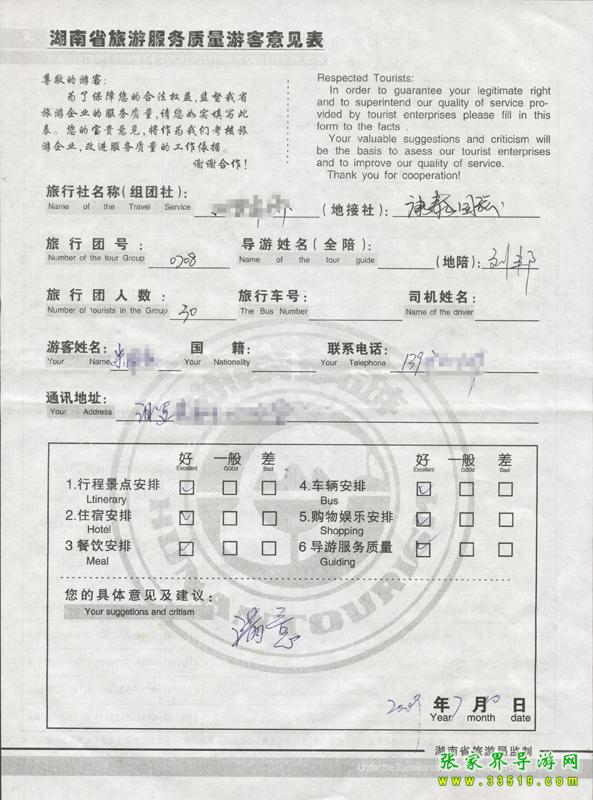 湖南省旅游服务质量游客意见表
尊敬的游客:
为了保障您的合法权益,监督我省
旅游企业的服务质量,请您如实填写此
表。您的宝贵意见,将作为我们考核旅
游企业,改进服务质量的工作依据。
谢谢合作!
Respected Tourists:
In order to guarantee your legitimate right
and to superintend our quality of service pro-
vided by tourist enterprises please fill in this
form to the facts .
Your valuable suggestions and criticism will
be the basis to asess our tourist enterprises
and to improve our quality of service.
Thank you for cooperation!
旅行社名称(组团社): (地接社): 康泰国旅
Name of the Travel Service
旅行团号: 0708 导游姓名(全陪): (地陪): 刘邦
Number of the tour Group Name of the tour guide
旅行团人数: 30 旅行车号: 司机姓名:
Number of tourists in the Group The Bus Number Name of the driver
游客姓名: 国籍: 联系电话: 139
Your Name Your Nationality Your Telephone
通讯地址:
Your Address
好 一般 差 好 一般 差
Excellent GOOd Bad Excellent GOOd Bad
1.行程景点安排 4.车辆安排
Ltinerary Bus
2.住宿安排 5.购物娱乐安排
Hotel Shopping
3 餐饮安排 6 导游服务质量
Meal Guiding
您的具体意见及建议:
Your suggetions and critism
满意
2009 年 7 月 10 日
Year month date
湖南省旅游局监制
Under the Surveillance
张家界导游网
www.33519.com